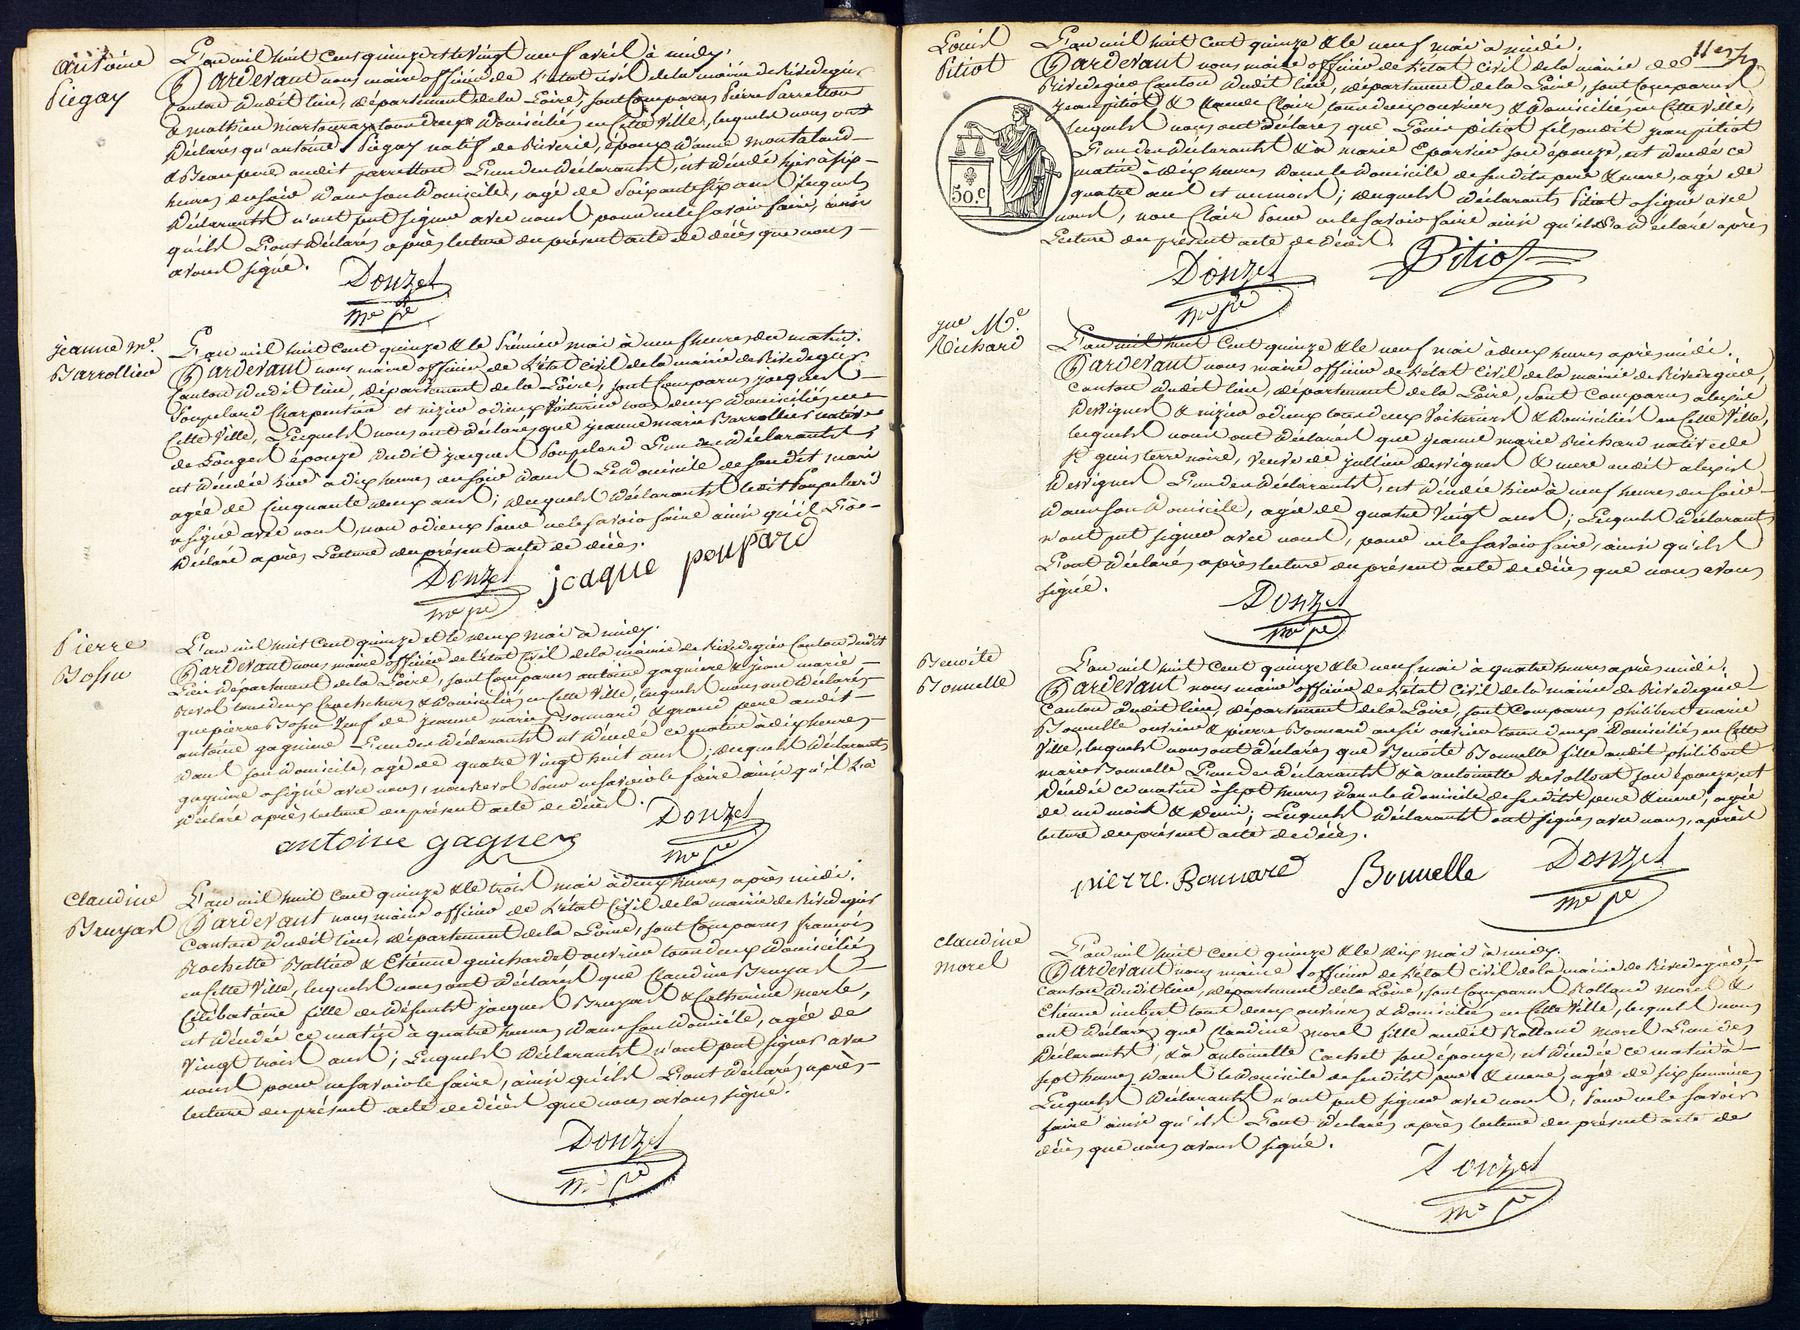 antoine
Piegay
L'an mil huit cent quinze et le vingt neuf avril à midy.
Pardevant nous maire officier de l'état civil de la mairie de Rivedegier
canton dudit lieu, département de la Loire, sont comparus Pierre Parretton
& mathieu tous deux domiciliés en cette ville, lesquels nous ont
déclarés qu'antoine Piegay natif de Riverie, époux d'anne montaland
& Beaupere audit parretton l'un des déclarants, est décédé hier à six
heures du soir dans son domicile, agé de soixante six ans; lesquels
déclarants n'ont put signer avec nous pour ne le savoir faire, ainsi
qu'ils l'ont déclarés après lecture du présent acte de décès que nous
avons signé.
Donzel
me pe
jeanne Me.
Barrollier
L'an mil huit cent quinze & le premier mai à neuf heures du matin.
Pardevant nous maire officier de l'état civil de la mairie de Rivedegier
canton dudit lieu, département de la Loire, sont comparus jacques
Poupelard charpentier et nizier odieux voiturier tous deux domiciliés en
cette ville, lesquels nous ont déclarés que jeanne marie Barrollier native
de épouze dudit jacques Poupelard l'un des déclarants,
est décédée hier à dix heures du soir dans le domicile de son dit mari
agée de cinquante deux ans; desquels déclarants ledit Poupelard
a signé avec nous, non odieux pour ne le savoir faire ainsi qu'il l'a
déclaré après lecture du présent acte de décès.
Donzel
me pe
jcaque poupard
Pierre
Bossu
L'an mil huit cent quinze et le deux mai à midy.
Pardevant nous maire officier de l'état civil de la mairie de Rivedegier canton dudit
lieu département de la Loire, sont comparus antoine gagniere & jean marie
Revol tous deux domiciliés en cette ville, lesquels nous ont déclarés
que pierre Bossu veuf de jeanne marie Bonnard & grand pere audit
antoine gagniere l'un des déclarants est décédé ce matin à dix heures
dans son domicile, agé de quatre vingt huit ans; desquels déclarants
gagniere a signé avec nous, non Revol pour ne savoir le faire ainsi qu'il l'a
déclaré après lecture du présent acte de décès.
antoine gagnerz
Donzel
me pe
claudine
Bruyas
L'an mil huit cent quinze & le trois mai à deux heures après midi.
Pardevant nous maire officier de l'état civil de la mairie de Rivedegier
canton dudit lieu, département de la Loire, sont comparus françois
Rochette & Etienne guichardet ouvrier tous deux domiciliés
en cette ville, lesquels nous ont déclarés que claudine Bruyas
célibataire fille de défunts jacques Bruyas & Catherine merle,
est décédée ce matin à quatre heures dans son domicile, agée de
vingt trois ans; lesquels déclarants n'ont put signer avec
nous pour ne savoir le faire, ainsi qu'ils l'ont déclarés après
lecture du présent acte de décès que nous avons signé.
Donzel
me pe
Louis
Pitiot
L'an mil huit cent quinze & le neuf mai à midi.
Pardevant nous maire officier de l'état civil de la mairie de
Rivedegier canton dudit lieu, département de la Loire, sont comparus
jean pitiot & Claude Clair, tous deux ouvriers & domiciliés en cette ville,
lesquels nous ont déclarés que Louis pitiot fils audit jean pitiot
l'un des déclarants & à marie Eparvier son épouze, est décédé ce
matin à dix heures dans le domicile de sesdits pere & mere, agé de
quatre ans et un mois; desquels déclarants Pitiot a signé avec
nous, non Clair pour ne le savoir faire ainsi qu'il l'a déclaré après
lecture du présent acte de décès.
50.C
Donzel
me pe
Pitiot
jne Me.
Richard
L'an mil huit cent quinze & le neuf mai à deux heures après midi.
Pardevant nous maire officier de l'état civil de la mairie de Rivedegier,
canton dudit lieu, département de la Loire, sont comparus alexis
dervignes & nizier odieux tous deux voituriers & domiciliés en cette ville,
lesquels nous ont déclarés que jeanne marie Richard native de
St genis terre noire, veuve de jullien dervignes & mere audit alexis
dervignes l'un des déclarants, est décédée hier à neuf heures du soir
dans son domicile, agée de quatre vingt ans; lesquels déclarants
n'ont put signer avec nous, pour ne le savoir faire, ainsi qu'ils
l'ont déclarés après lecture du présent acte de décès que nous avons
signé.
Donzel
me pe
Benoite
Bonnelle
L'an mil huit cent quinze & le neuf mai à quatre heures après midi.
Pardevant nous maire officier de l'état civil de la mairie de Rivedegier
canton dudit lieu, département de la Loire, sont comparus philibert marie
Bonnelle ouvrier & pierre Bonnard aussi ouvrier tous deux domiciliés en cette
ville, lesquels nous ont déclarés que Benoite Bonnelle fille audit philibert
marie Bonnelle l'un des déclarants & à antoinette son épouze, est
décédée ce matin à sept heures dans le domicile de sesdits pere & mere, agée
de un mois & demi; lesquels déclarants ont signés avec nous, après
lecture du présent acte de décès.
pierre. Bonnard
Bonnelle
Donzel
me pe
claudine
morel
L'an mil huit cent quinze & le dix mai à midy.
Pardevant nous maire officier de l'état civil de la mairie de Rivedegier,
canton dudit lieu, département de la Loire, sont comparus Rolland morel &
Etienne imbert tous deux ouvriers & domiciliés en cette ville, lesquels nous
ont déclarés que claudine morel fille audit Rolland morel l'un des
déclarants, & à antoinette Cachet son épouze, est décédée ce matin à
sept heures dans le domicile de sesdits pere & mere, agée de six semaines
lesquels déclarants n'ont put signer avec nous, pour ne le savoir
faire ainsi qu'ils l'ont déclarés après lecture du présent acte de
décès que nous avons signé.
Donzel
me pe